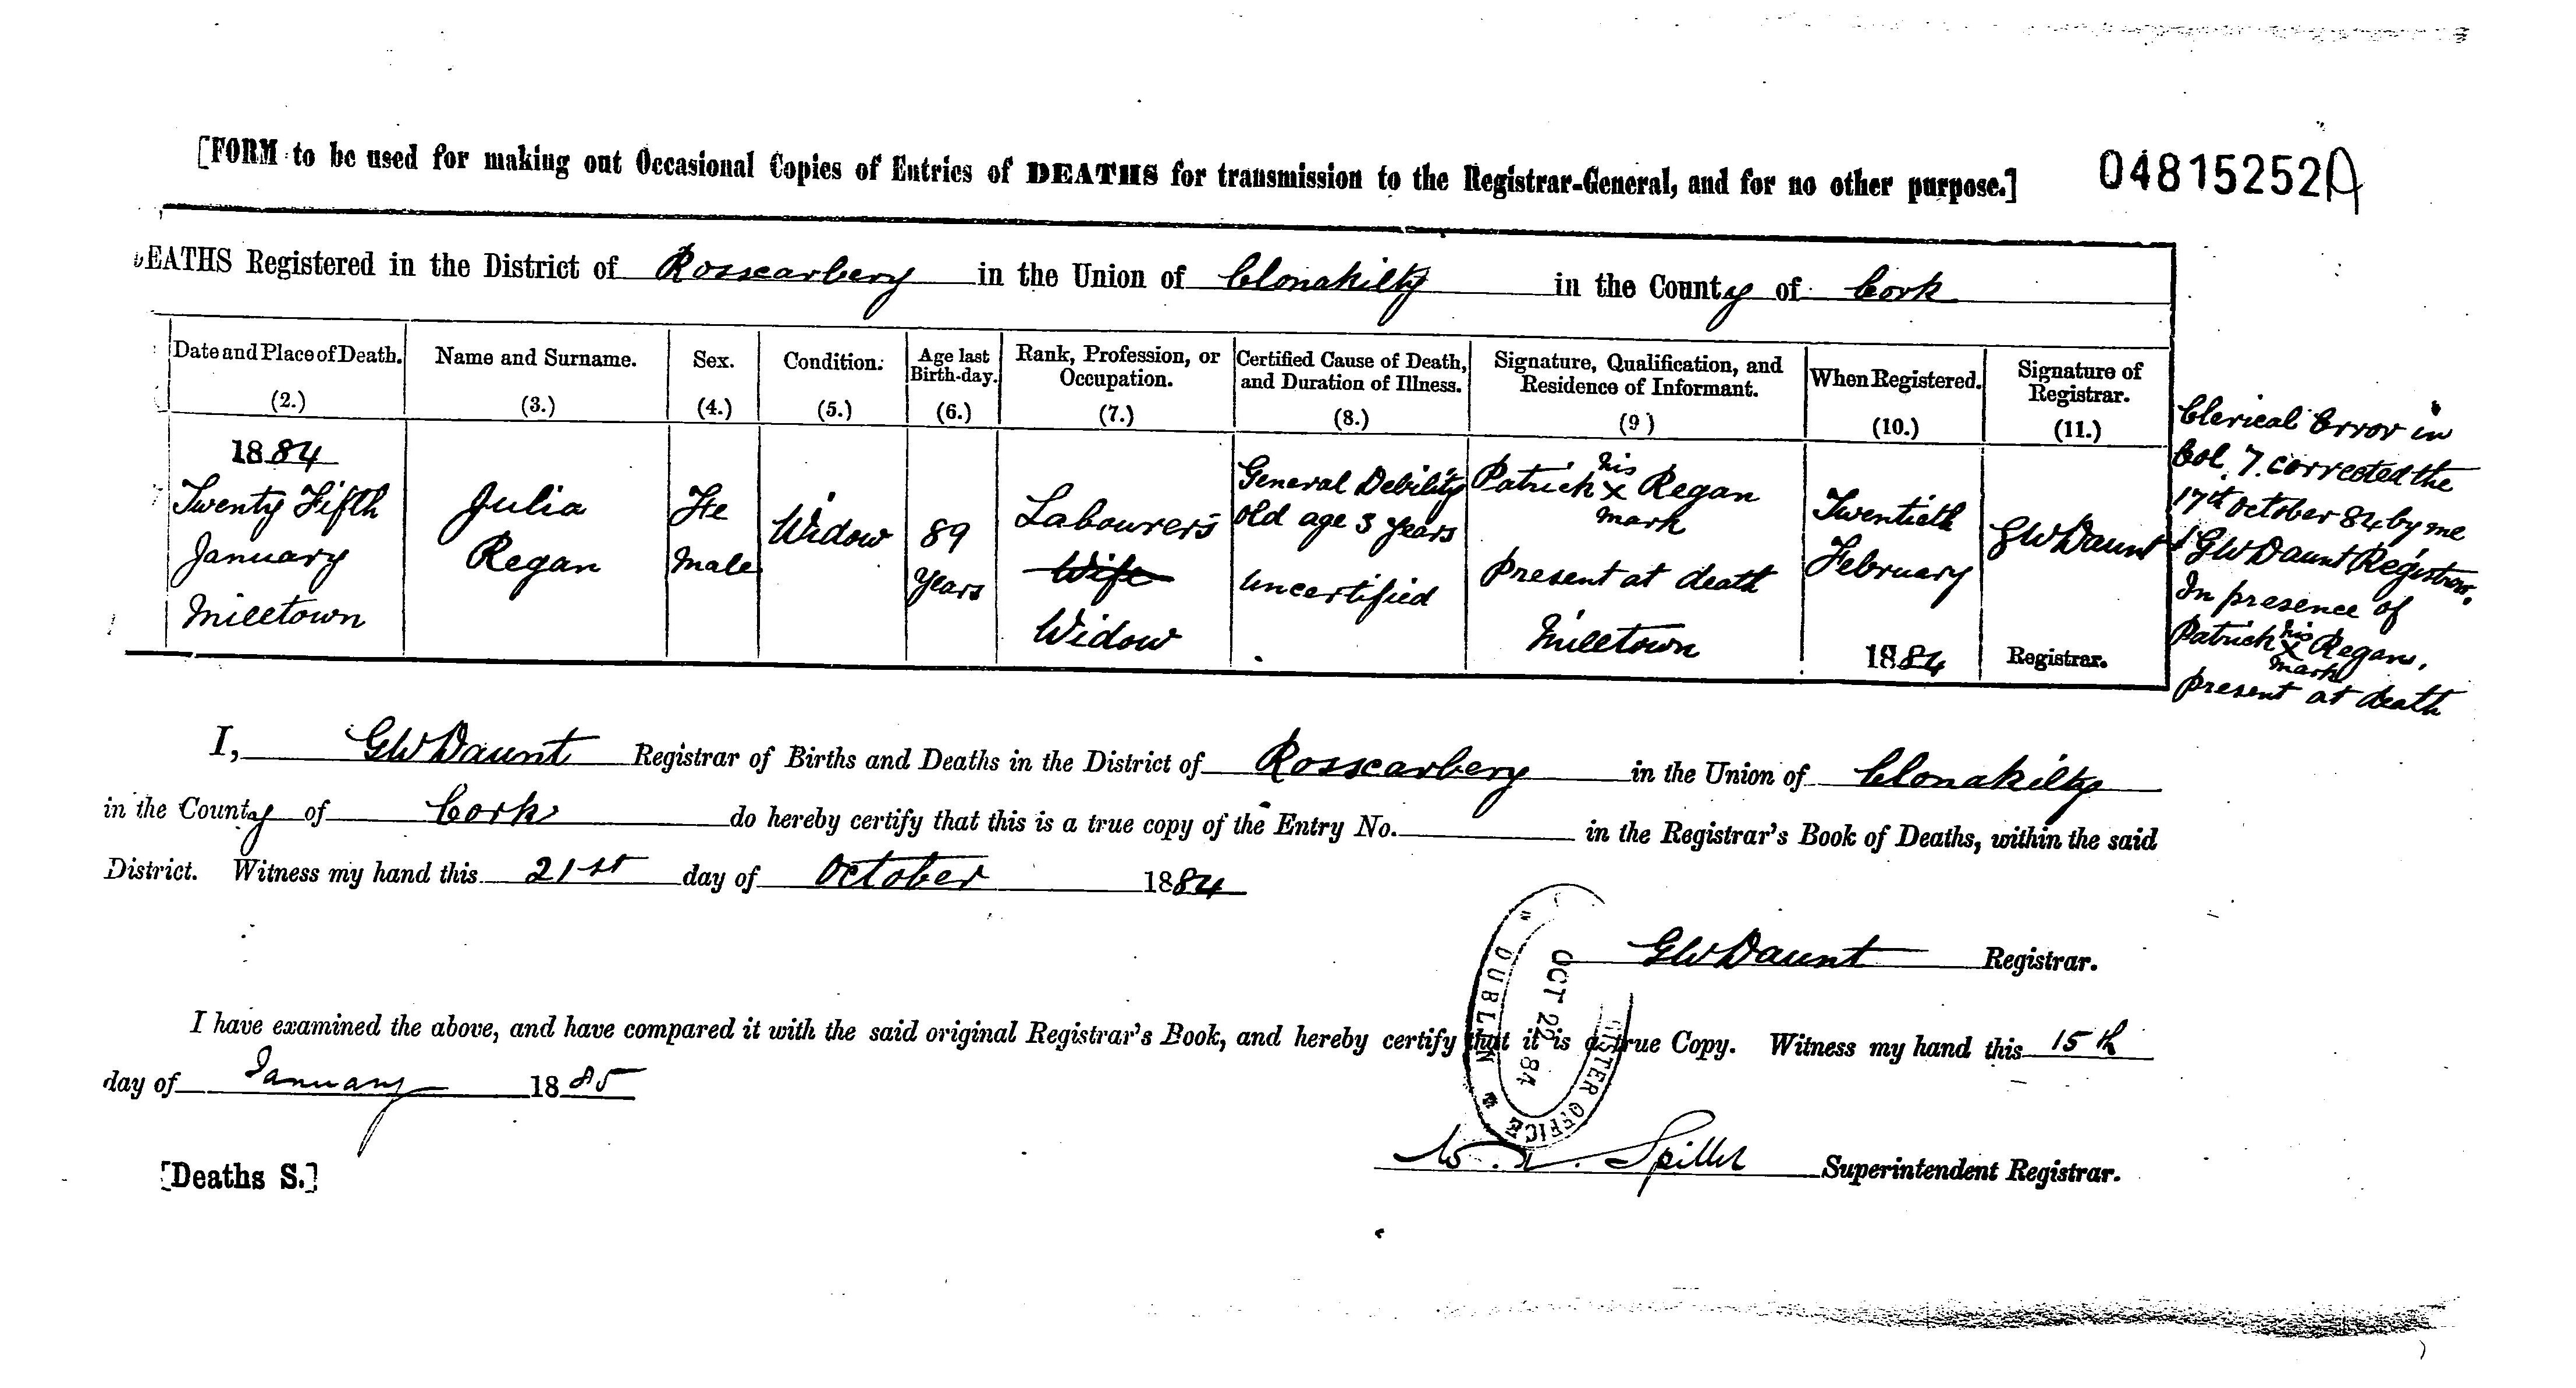 [FORM to be used for making out Occasional Copies of Entries of DEATHS for transmission to the Registrar-General, and for no other purpose.]
04815252A
EATHS Registered in the District of Rosscarbery in the Union of Clonakilty in the County of Cork
Date and Place of Death.
(2.)
Name and Surname.
(3.)
Sex.
(4.)
Condition.
(5.)
Age last
Birth-day.
(6.)
Rank, Profession, or
Occupation.
(7.)
Certified Cause of Death,
and Duration of Illness.
(8.)
Signature, Qualification, and
Residence of Informant.
(9)
When Registered.
(10.)
Signature of
Registrar.
(11.)
1884
Twenty Fifth
January
Milltown
Julia
Regan
Fe
Male
Widow
89
Years
Labourers
Wife
Widow
General Debility
old age 3 years
uncertified
his
Patrick x Regan
mark
Present at death
Milltown
Twentieth
February
1884
GW Daunt
Registrar.
Clerical Error in
Col. 7. corrected the
17th October 84 by me
GW Daunt Registrar.
In presence of
his
Patrick x Regan.
mark
present at death
I, GW Daunt Registrar of Births and Deaths in the District of Rosscarbery in the Union of Clonakilty
in the County of Cork do hereby certify that this is a true copy of the Entry No. in the Registrar's Book of Deaths, within the said
District. Witness my hand this 21st day of October 1884
GW Daunt Registrar.
I have examined the above, and have compared it with the said original Registrar's Book, and hereby certify that it is a true Copy. Witness my hand this 15th
day of January 1885
DUBLIN
OCT 22 84
OFFICE
Spiller Superintendent Registrar.
[Deaths S.]